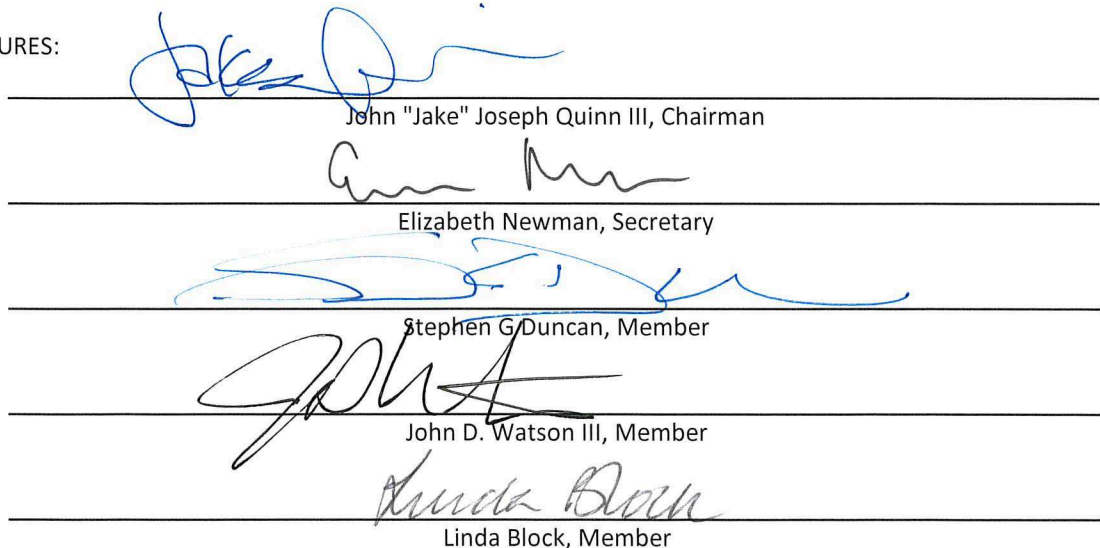 URES:
Jake Q
John "Jake" Joseph Quinn III, Chairman
Elizabeth Newman, Secretary
Stephen G Duncan, Member
John D. Watson III, Member
Linda Block
Linda Block, Member